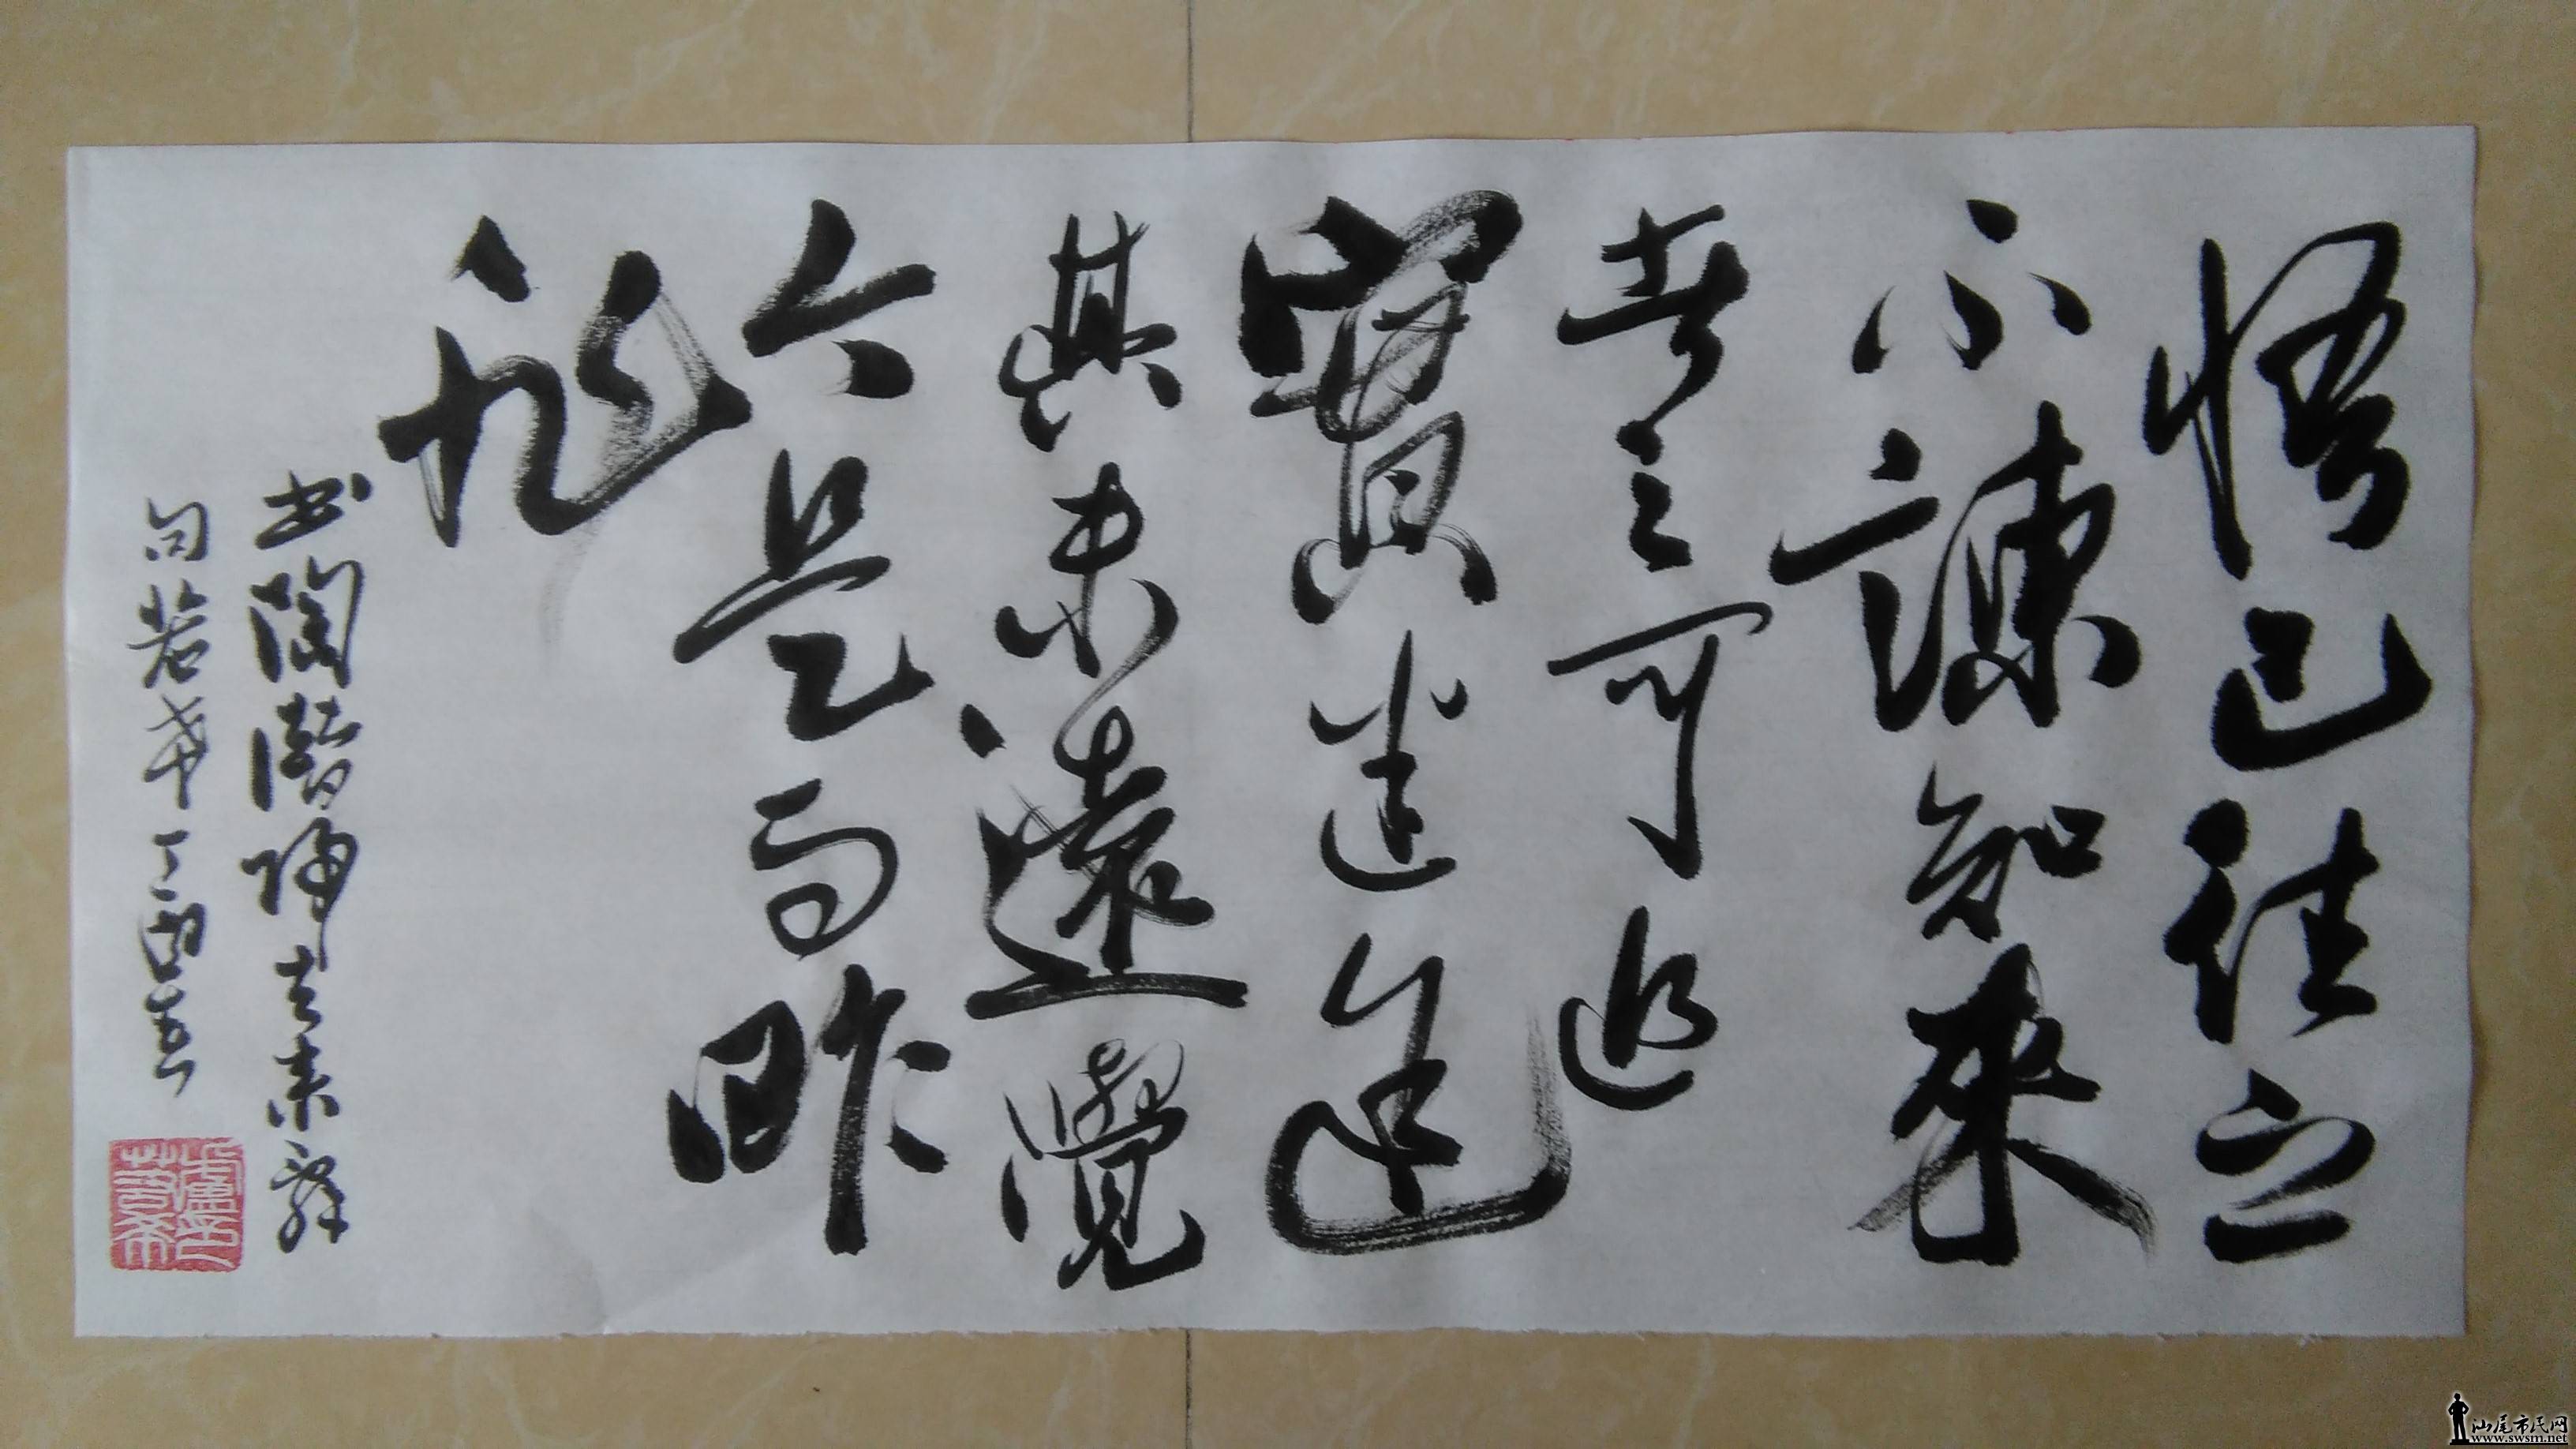 悟已往之
不諫知來
者之可追
實迷途
其未遠覺
今是而昨
非
书陶潛歸去来辞
句若華丁酉春
汕尾市民网
www.swsm.net